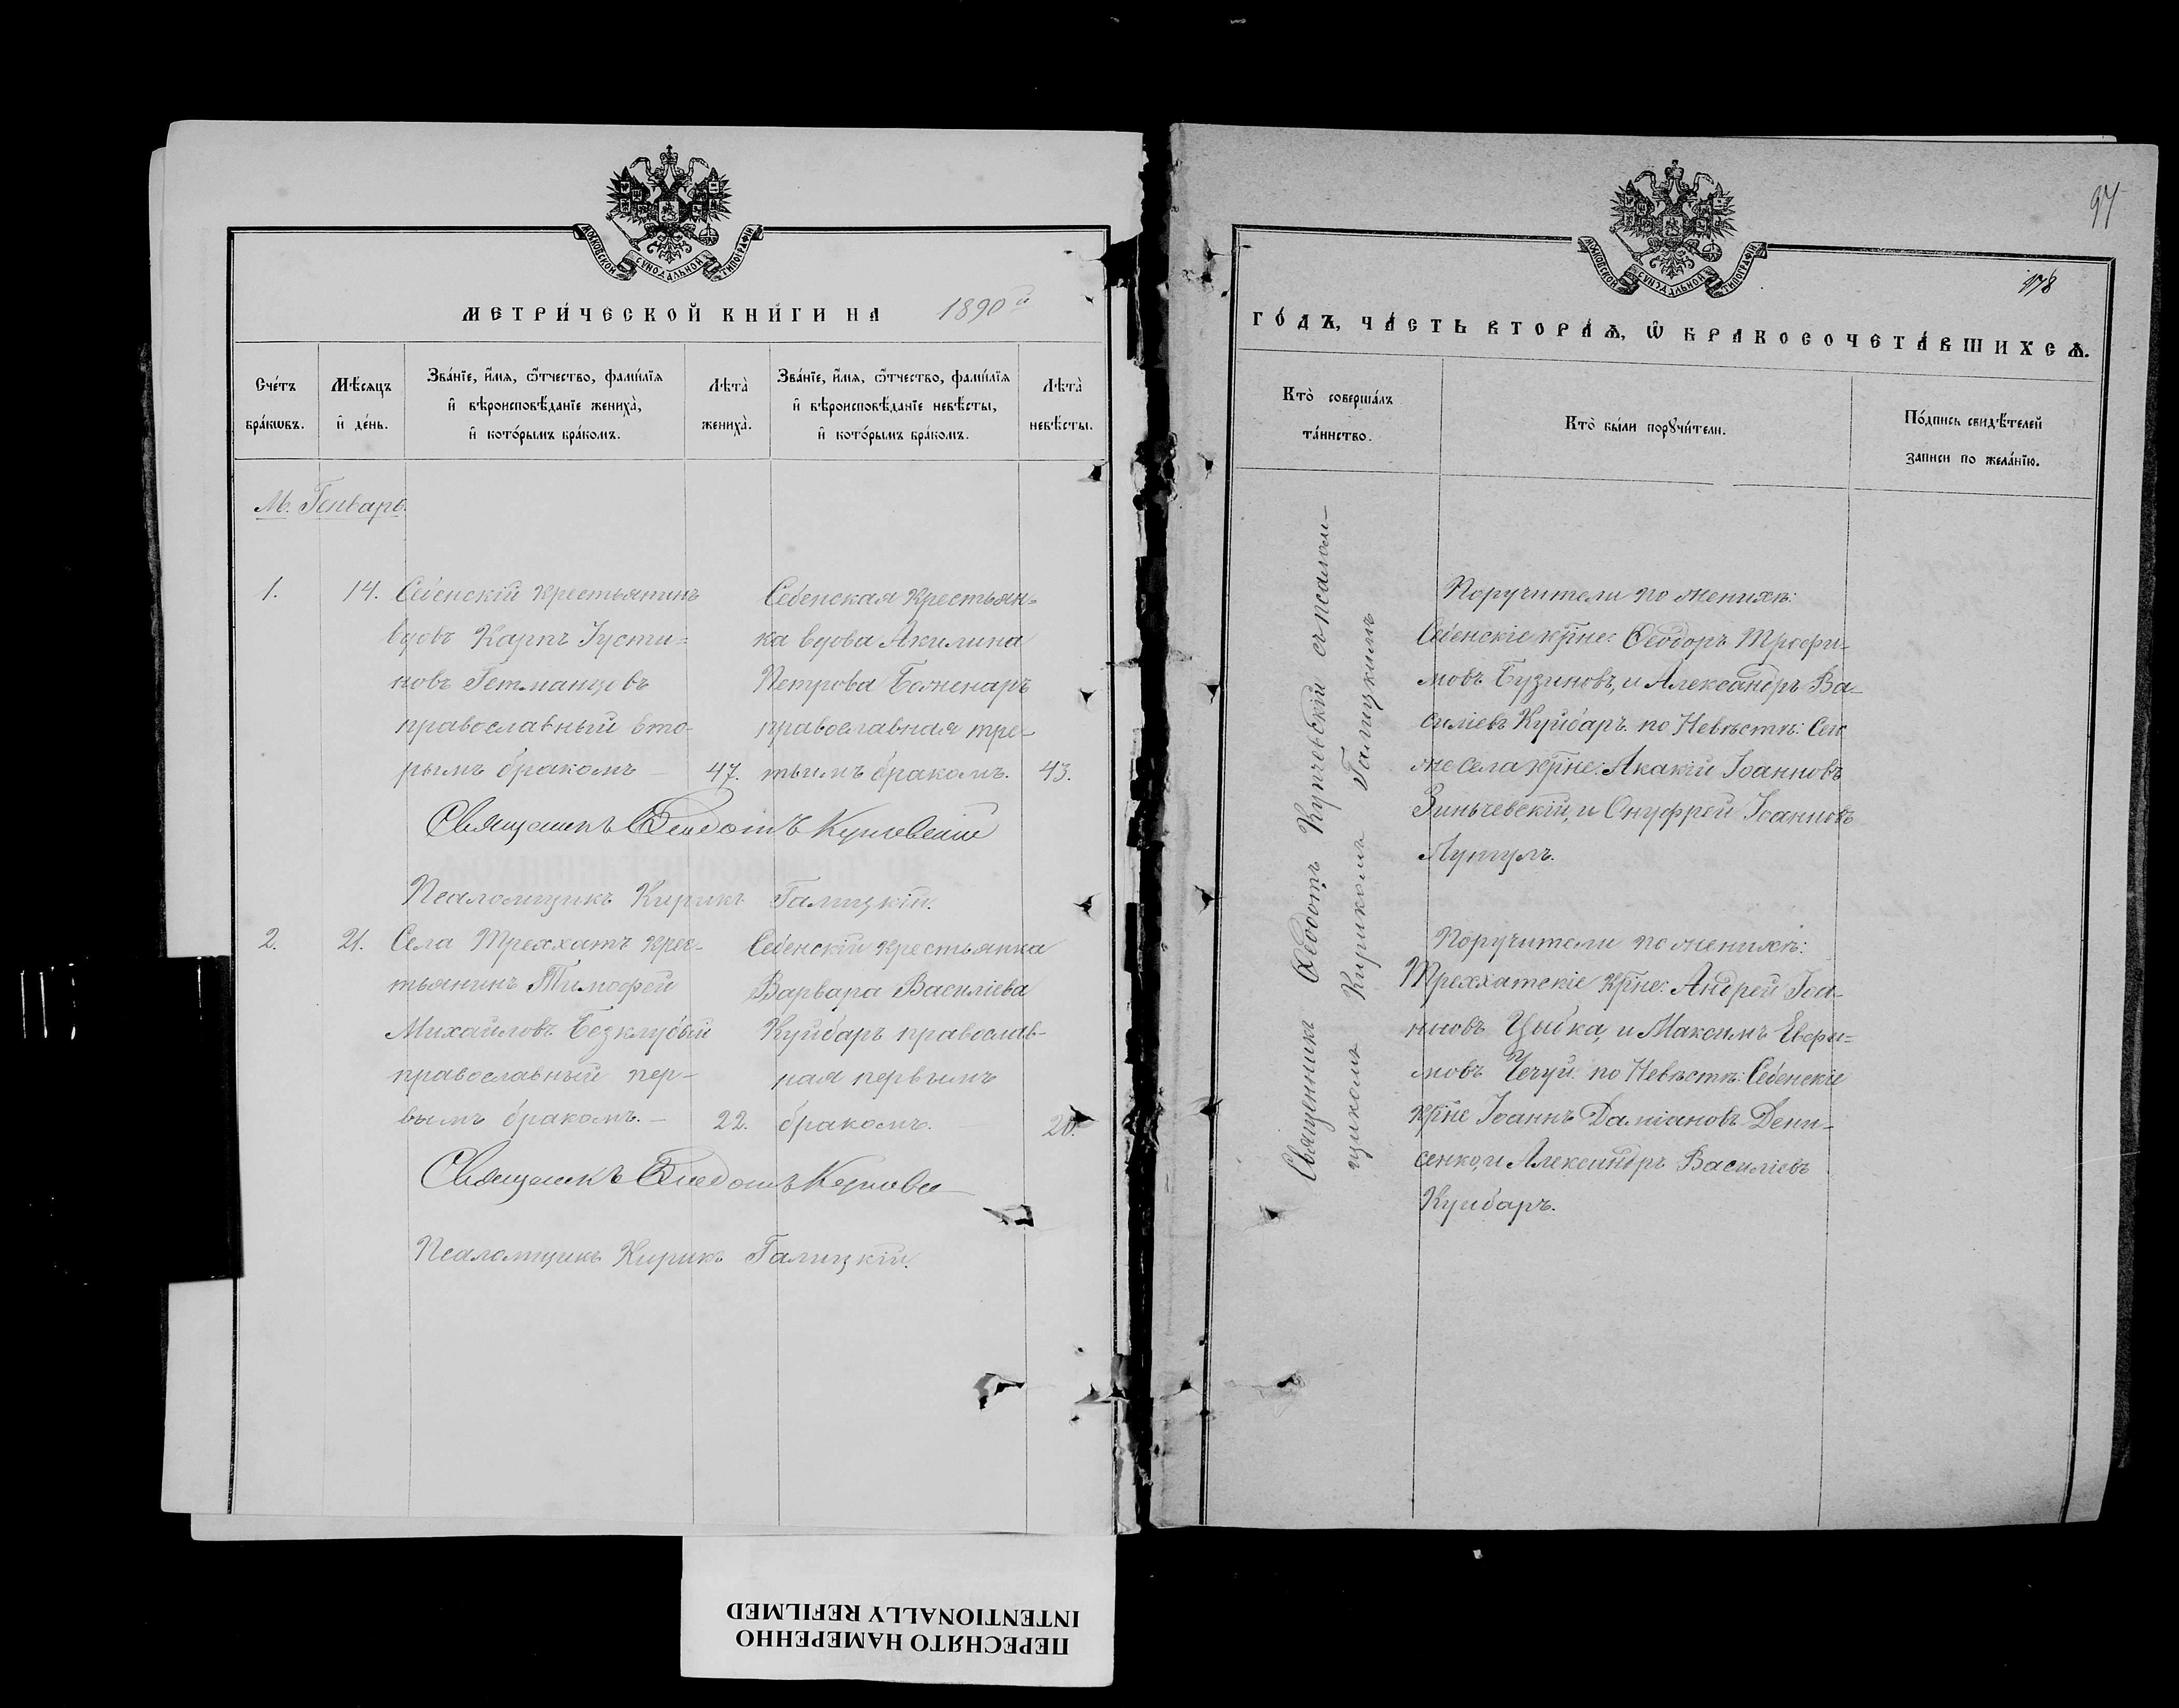 МОСКОВСКОЙ СѴНОДАЛЬНОЙ ТИПОГРАФІИ
МЕТРИ́ЧЕСКОЙ КНИ́ГИ НА 1890й
Сче́тъ бра́кѡвъ.
Мѣ́сяцъ и҆ де́нь.
Зва́нїе, и҆́мѧ, ѻ҆́тчество, фами́лїѧ
и҆ вѣроисповѣ́данїе жениха̀,
и҆ кото́рымъ бра́комъ.
Лѣта̀ жениха̀.
Зва́нїе, и҆́мѧ, ѻ҆́тчество, фами́лїѧ
и҆ вѣроисповѣ́данїе невѣ́сты,
и҆ кото́рымъ бра́комъ.
Лѣта̀ невѣ́сты.
М. Генварь.
1. 14.
Себенскій крестьянинъ
вдовъ Карпъ Іусти=
новъ Гетманцевъ
православный вто-
рымъ бракомъ – 47.
Себенская крестьян=
ка вдова Акилина
Петрова Боженаръ
православная тре-
тьимъ бракомъ. 43.
Священникъ Ѳеодотъ
Псаломщикъ Кирикъ Галицкій.
2. 21.
Села Трехатъ крес-
тьянинъ Тимофей
Михайловъ Безклубый
православный пер-
вымъ бракомъ. – 22.
Себенскій крестьянка
Варвара Василіева
Куйбаръ православ-
ная первымъ
бракомъ. 20.
Священникъ Ѳеодотъ
Псаломщикъ Кирикъ Галицкій.
97
МОСКОВСКОЙ СѴНОДАЛЬНОЙ ТИПОГРАФІИ
178
ГО́ДЪ, ЧА́СТЬ ВТОРА́Ѧ, Ѡ҆ БРАКОСОЧЕТА́ВШИХСѦ.
Кто̀ соверша́лъ
та́инство.
Кто̀ бы́ли порꙋчи́тели.
По́дпись свидѣ́телей
записи по жела́нїю.
Священникъ Ѳеодотъ Купчевскій съ псалом-
щикомъ Кирикомъ Галицкимъ
Поручители по женихѣ:
Себенскіе кр̃не: Ѳеодоръ Трофи-
мовъ Бузиновъ, и Александръ Ва-
силіевъ Куйбаръ. по Невѣстѣ: Сего
же села кр̃не: Акакій Іоанновъ
Зиньчевскій, и Онуфрей Іоанновъ
Лупулъ.
Поручители по женихѣ:
Трехатскіе кр̃не: Андрей Іоа-
нновъ Цыбка, и Максимъ Ефи=
мовъ Чечуй. по Невѣстѣ: Себенскіе
кр̃не Іоаннъ Даміановъ Дени-
сенко, и Александръ Василіевъ
Куйбаръ.
ПЕРЕСНЯТО НАМЕРЕННО
INTENTIONALLY REFILMED